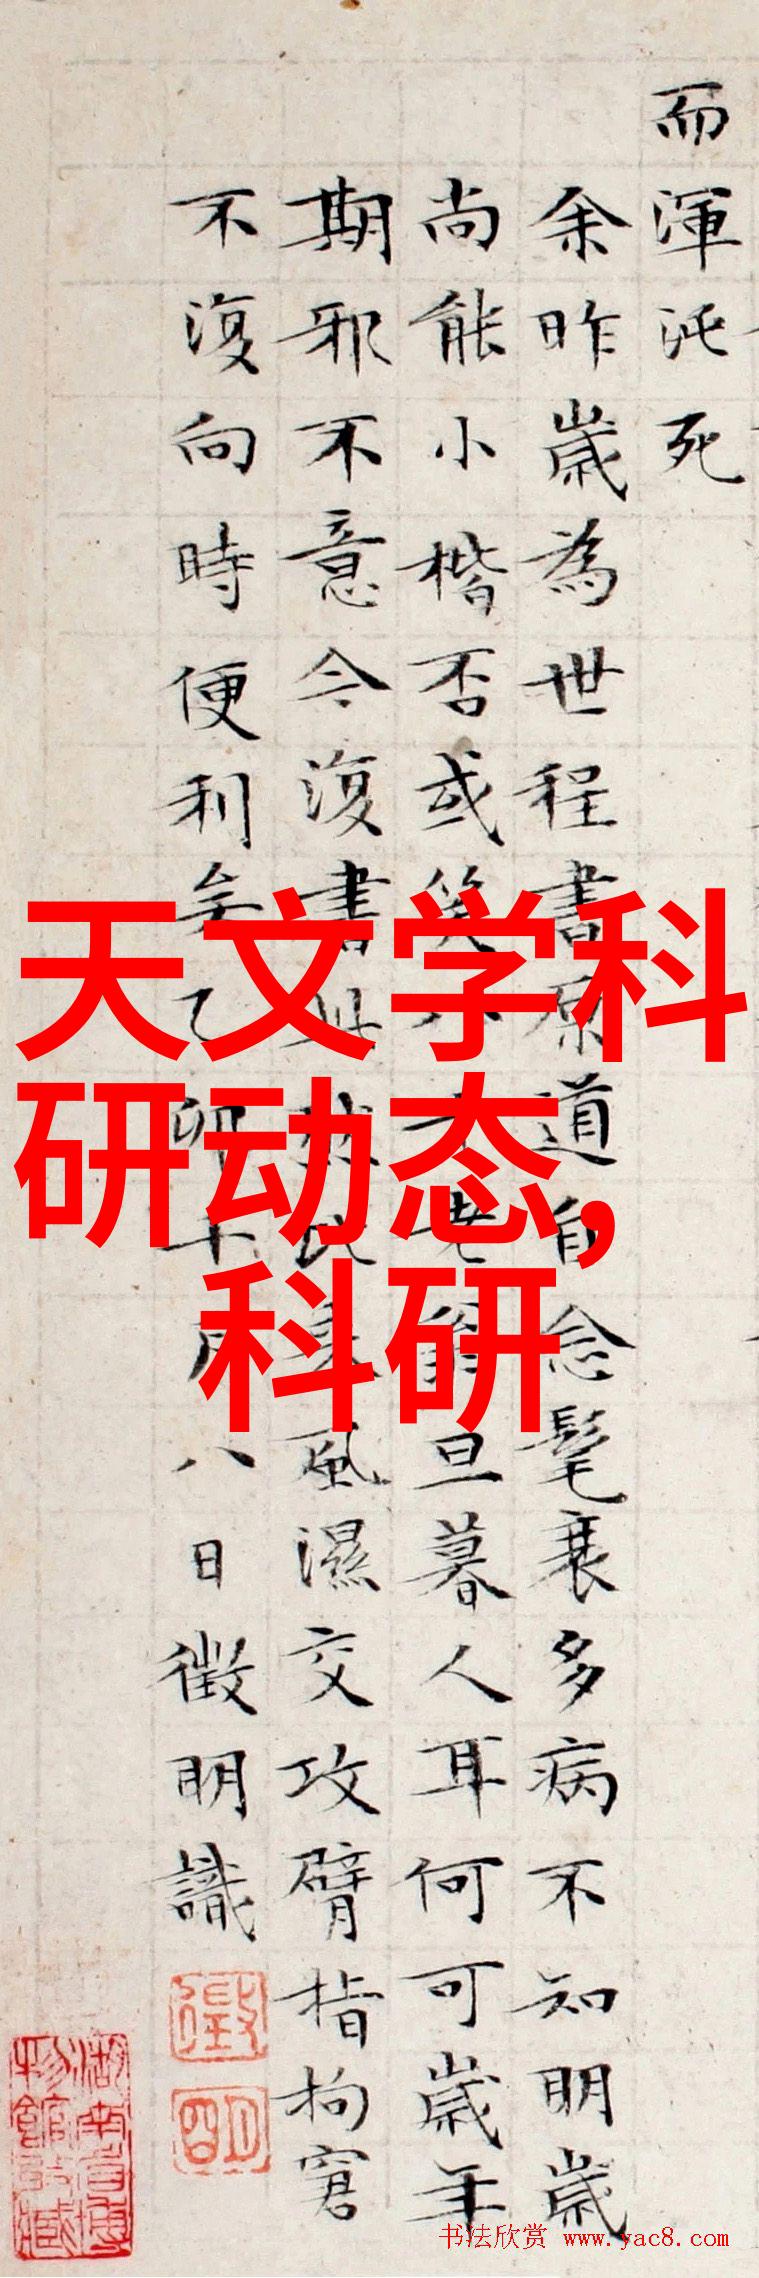 而渾沌死
余昨歲為世程書原道自念髦衰多病不知明歲
尚能小楷否或笑八十老翁旦暮人耳何可歲年
期邪不意今復書此然比來風濕交攻臂指拘窘
不復向時便利矣乙卯十月八日徵明識
天文学科
研动态,
科研
书法欣赏 www.yac8.com